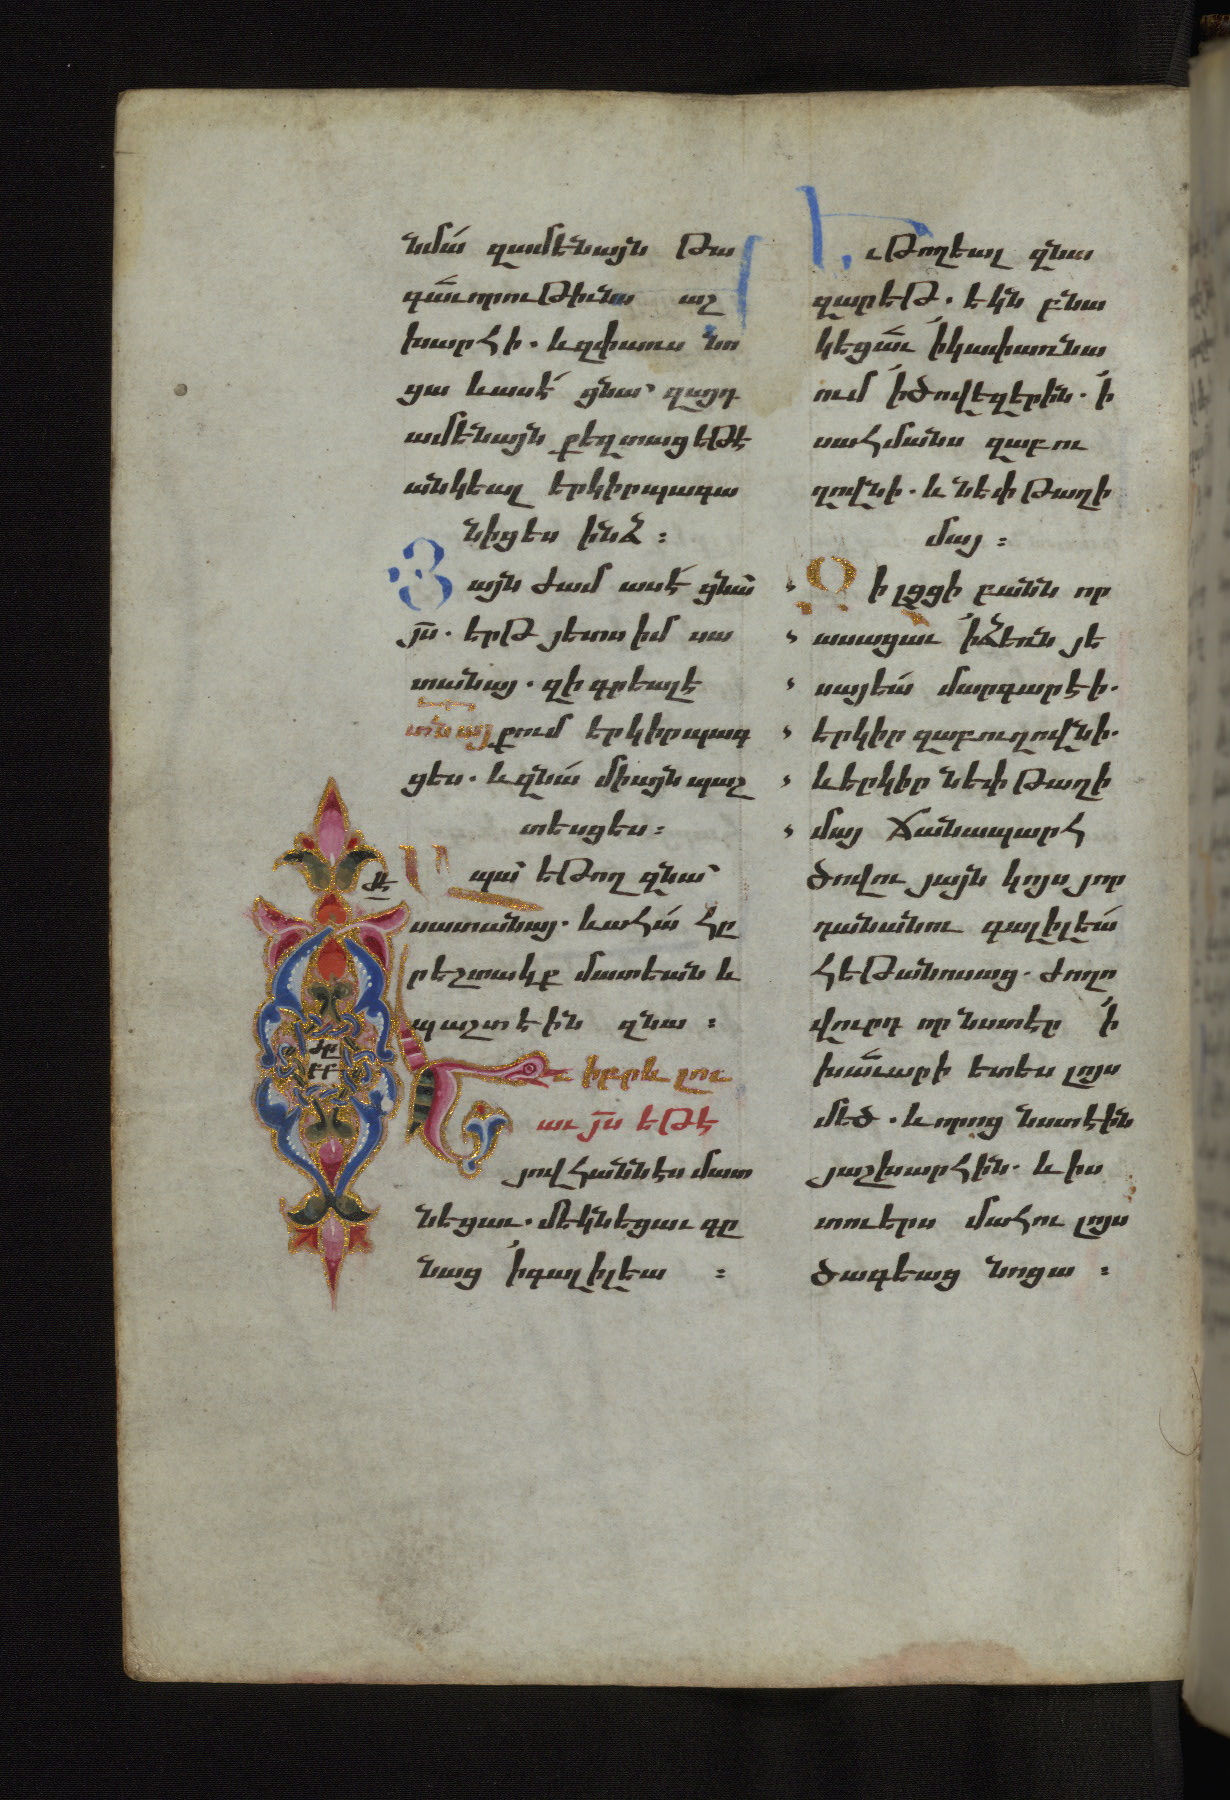 նմա զամենայն թա
գաւորութիւնս աշ
խարհի. և զփառս նո
ցա և ասէ ցնա՝ զայդ
ամենայն քեզ տաց եթէ
անկեալ երկիրպագա
նիցես ինձ ։
Յայնժամ ասէ ցնա
յս̅. երթ յետս իմ սա
տանայ. զի գրեալ է
տն̅ այ քում երկիրպագ
ցես. և զնա միայն պաշ
տեսցես ։
ԺԷ
Ապա եթող զնա՝
սատանայ. և ահա հը
րեշտակք մատեան և
պաշտէին զնա ։
Եւ իբրև լու
աւ յս̅ եթէ
յովհաննէս մատ
նեցաւ. մեկնեցաւ գը
նաց ՛ի գալիլեա ։
Եւ թողեալ զնա
զարեթ. եկն բնա
կեցաւ ՛ի կափառնա
ում ՛ի ծովեզերին. ՛ի
սահմանս զաբու
ղովնի. և նեփթաղի
մայ ։
Զի լցցի բանն որ
ասացաւ ՛ի ձեռն յե
սայեա մարգարէի.
երկիր զաբուղովնի.
և երկիր նեփթաղի
մայ ճանապարհ
ծովու յայն կոյս յոր
դանանու գալիլեա
հեթանոսաց. ժողո
վուրդ որ նստէր ՛ի
խաւարի ետես լոյս
մեծ. և որոց նստէին
յաշխարհին. և ՛ի ս
տուերս մահու լոյս
ծագեաց նոցա ։